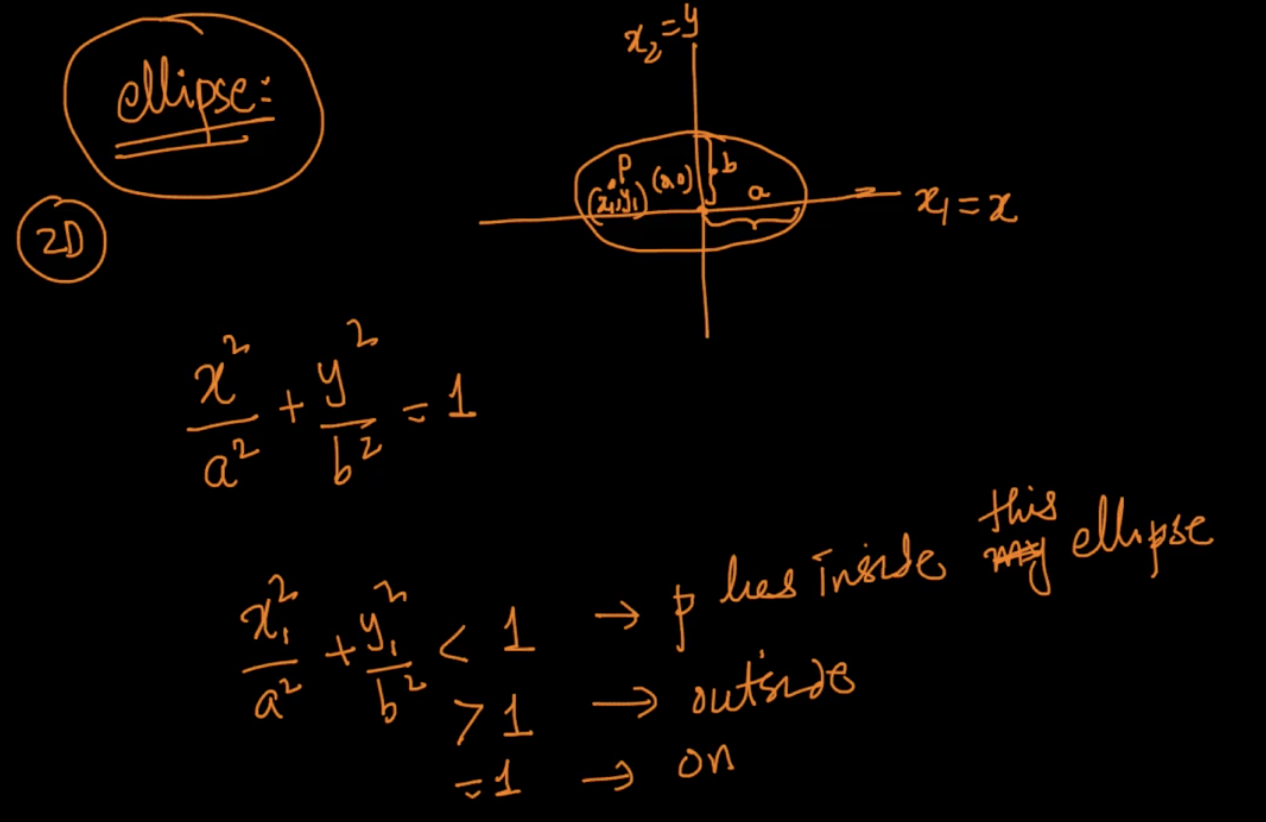 ellipse:
2D
x₂=y
p
(x₁,y₁) (0,0)
b
a
x₁=x
x²/a² + y²/b² = 1
x₁²/a² + y₁²/b² < 1 → p lies inside this ellipse
>1 → outside
=1 → on